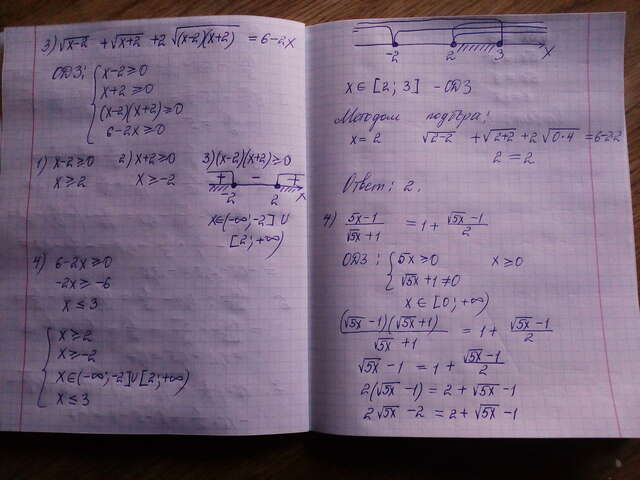 3) √(x-2) + √(x+2) + 2√((x-2)(x+2)) = 6-2x
ОДЗ: { x-2≥0
x+2≥0
(x-2)(x+2)≥0
6-2x≥0
1) x-2≥0 2) x+2≥0 3) (x-2)(x+2)≥0
x≥2 x≥-2 + - +
-2 2 x
x∈(-∞;-2]∪
[2;+∞)
4) 6-2x≥0
-2x≥-6
x≤3
{ x≥2
x≥-2
x∈(-∞;-2]∪[2;+∞)
x≤3
-2 2 3 x
x∈[2;3] - ОДЗ
Методом подбора:
x=2 √(2-2) + √(2+2) + 2√(0·4) = 6-2·2
2=2
Ответ: 2.
4) (5x-1)/(√(5x)+1) = 1 + (√(5x)-1)/2
ОДЗ: { 5x≥0 x≥0
√(5x)+1≠0
x∈[0;+∞)
((√(5x)-1)(√(5x)+1))/(√(5x)+1) = 1 + (√(5x)-1)/2
√(5x)-1 = 1 + (√(5x)-1)/2
2(√(5x)-1) = 2+√(5x)-1
2√(5x)-2 = 2+√(5x)-1